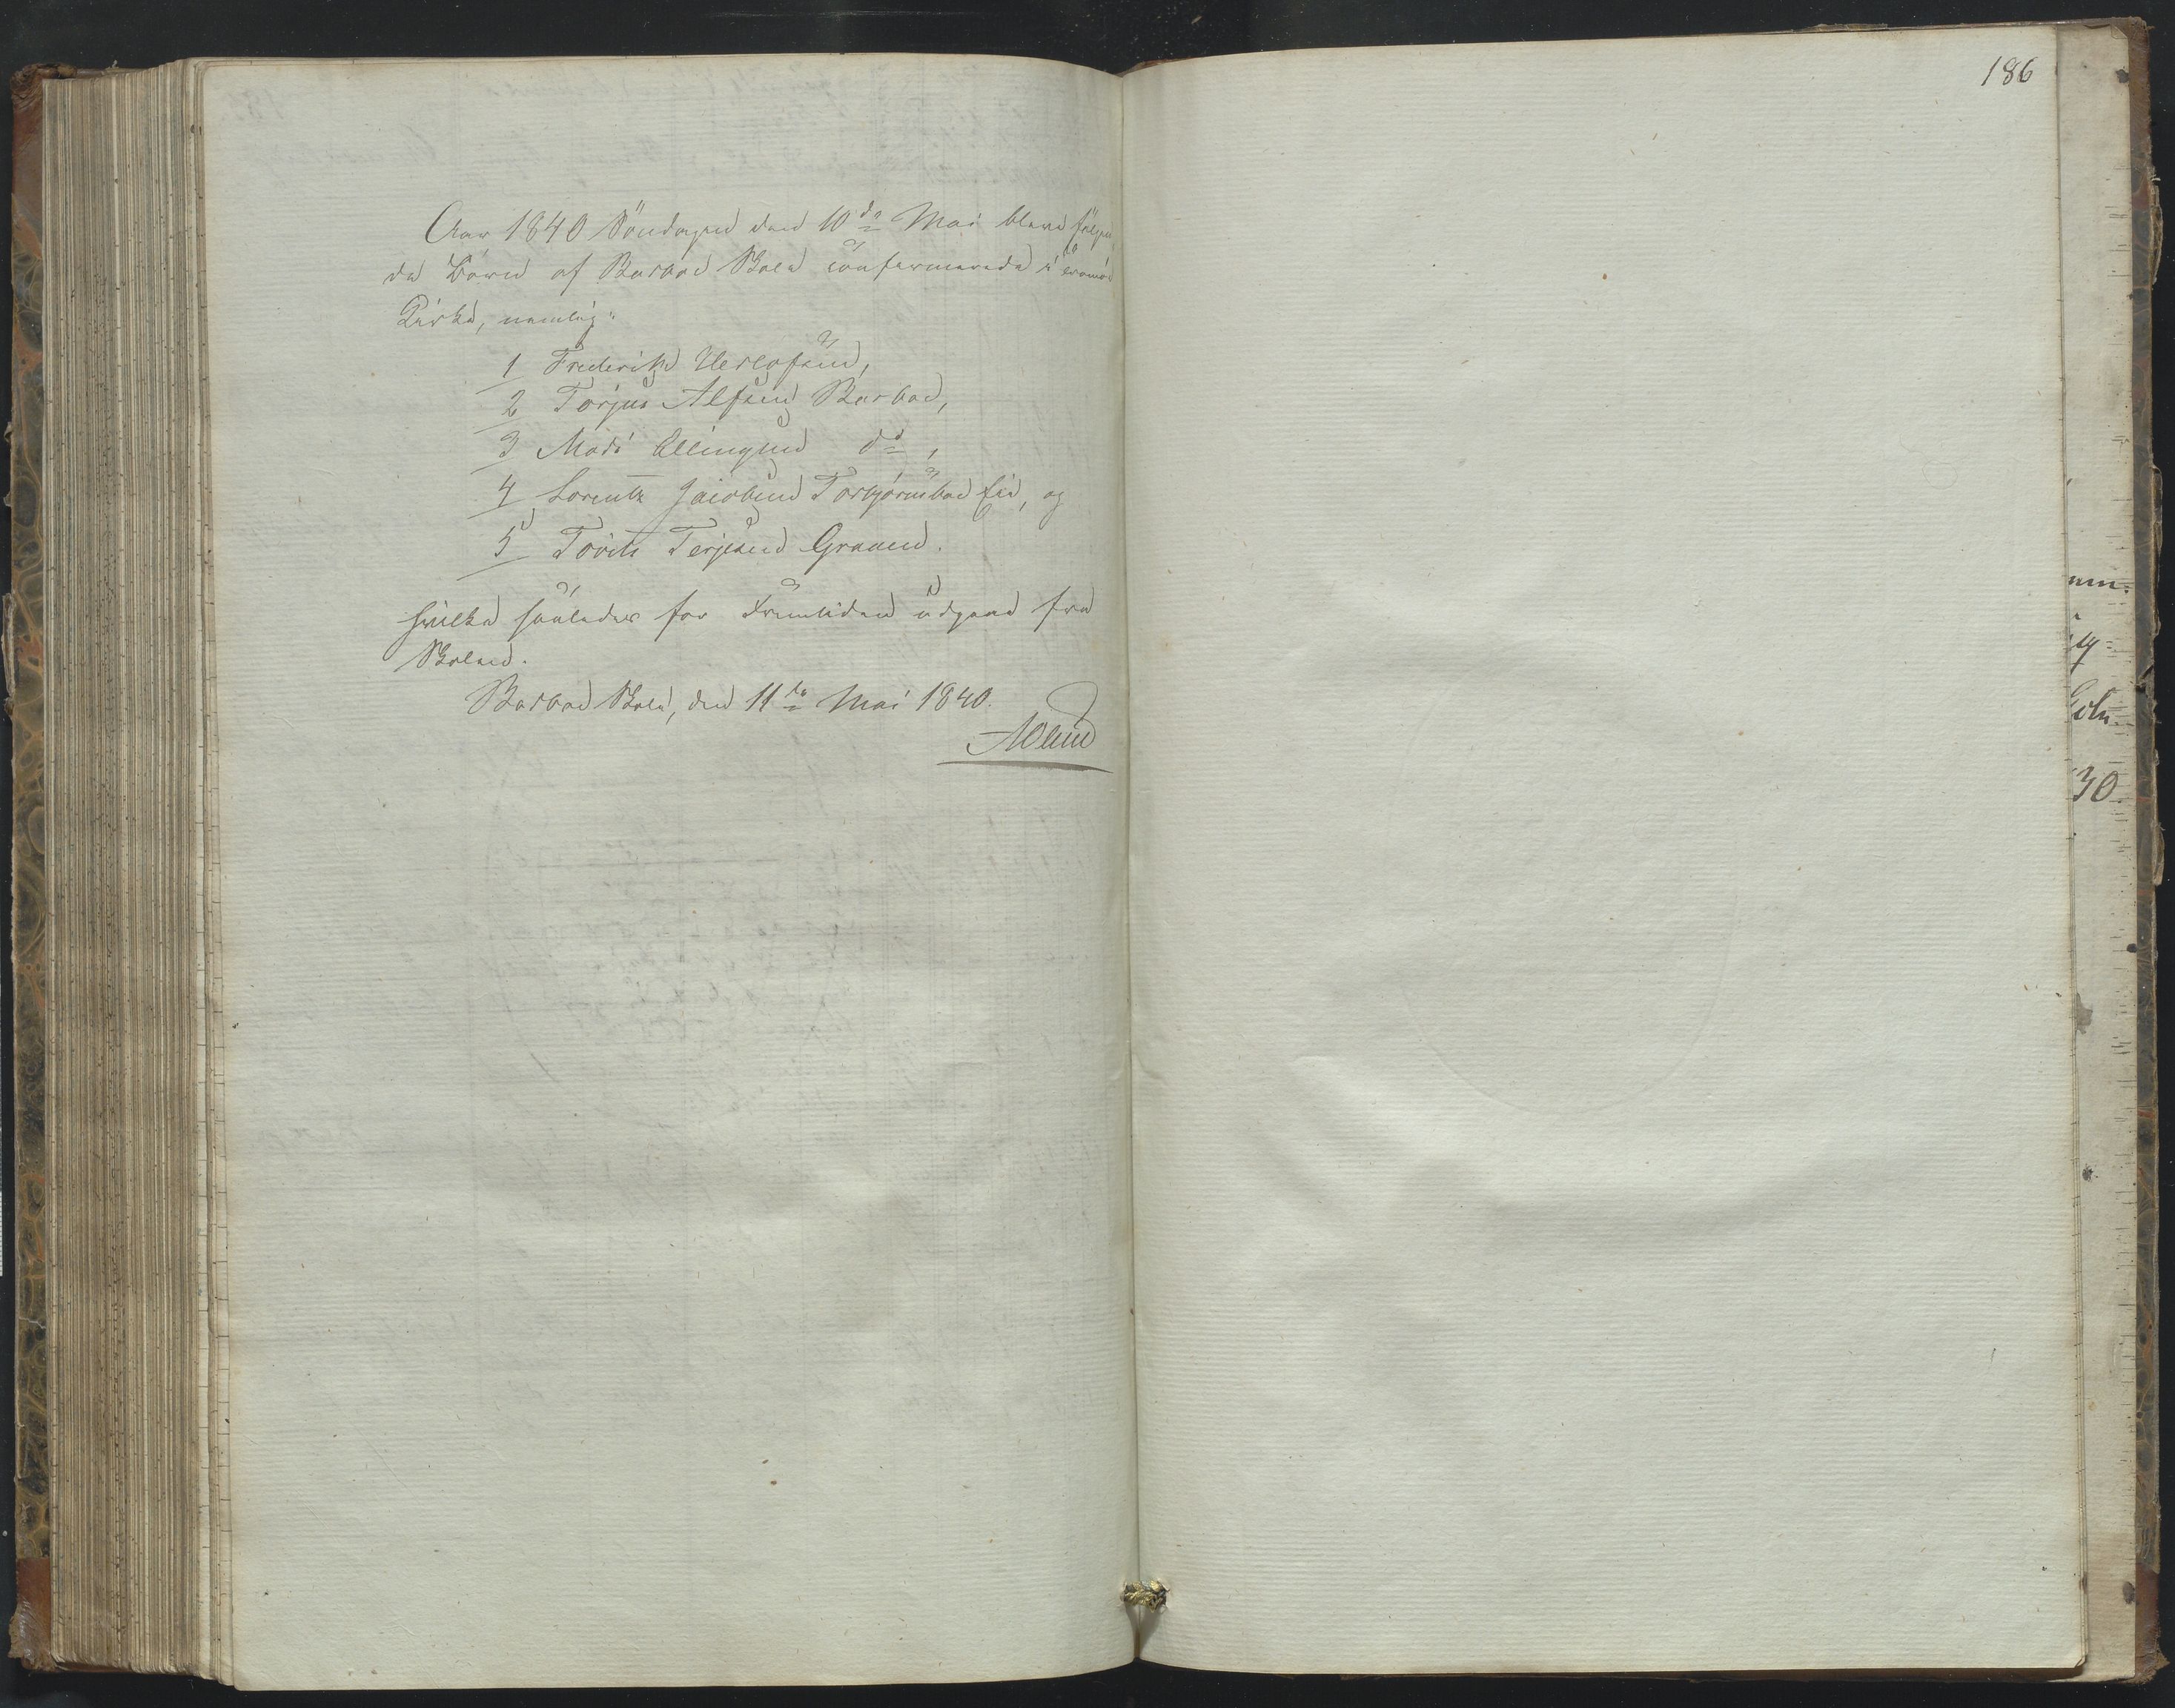 186
Aar 1840 Söndagen den 10de Mai bleve fölgen-
de Börn af Barboe Skole confirmerede i Tromöe
Kirke, nemlig:
1 Frederik Herlofsen,
2 Torjus Alfsen Barboe,
3 Mads Ellingsen do,
4 Lorentz Jacobsen Torbjörnsboe Eie, og
5 Terjesen Graaen.
hvilke saaledes for Fremtiden udgaae fra
Skolen.
Barboe Skole, den 11te Mai 1840.
30